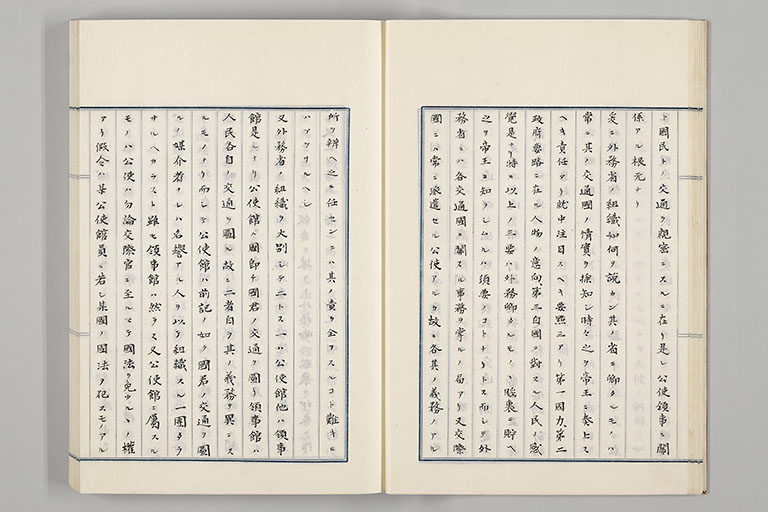 ト國民トノ交通ヲ親密ニスルニ在リ是レ公使領事ニ關
係アル根元ナリ
爰ニ外務省ノ組織如何ヲ說カン其ノ省ニ卿タルモノハ
常ニ其ノ交通國ノ情實ヲ探知シ時々之ヲ帝王ニ奏上ス
ヘキ責任アリ就中注目スヘキ要點三アリ第一國力第二
政府要路ニ在ル人物ノ意向第三自國ニ對スル人民ノ感
覺是ナリ特ニ以上ノ三要ハ外務卿タルモノヽ脳裏ニ貯ヘ
之ヲ帝王ニ知ラシムルハ須要ノコトナリトス而シテ外
務省ニハ各交通國ニ關スル事務ヲ掌ルノ局アリ又交際
國ニハ常ニ派遣セル公使アルカ故ニ各其ノ義務ノアル
所ヲ辨ヘ之ニ任センニハ其ノ責ヲ全フスルコト難キニ
ハアラサルヘシ
又外務省ノ組織ヲ大別シテ二トス一ハ公使館他ハ領事
館是レナリ公使館ハ國卽チ國君ノ交通ヲ圖リ領事館ハ
人民各自ノ交通ヲ圖ル故ニ二者自ラ其ノ義務ヲ異ニス
ルモノナリ而シテ公使館ハ前記ノ如ク國君ノ交通ヲ圖
ルノ媒介者ナレハ名譽アル人ヲ以テ組織スル一團タラ
サルヘカラスト雖モ領事館ハ然ラス又公使館ニ屬スル
モノハ公使ハ勿論交際官ニ至ルマテ國法ヲ免カルヽノ權
アリ假令ハ某公使館員ニ若シ某國ノ國法ヲ犯スモノアル